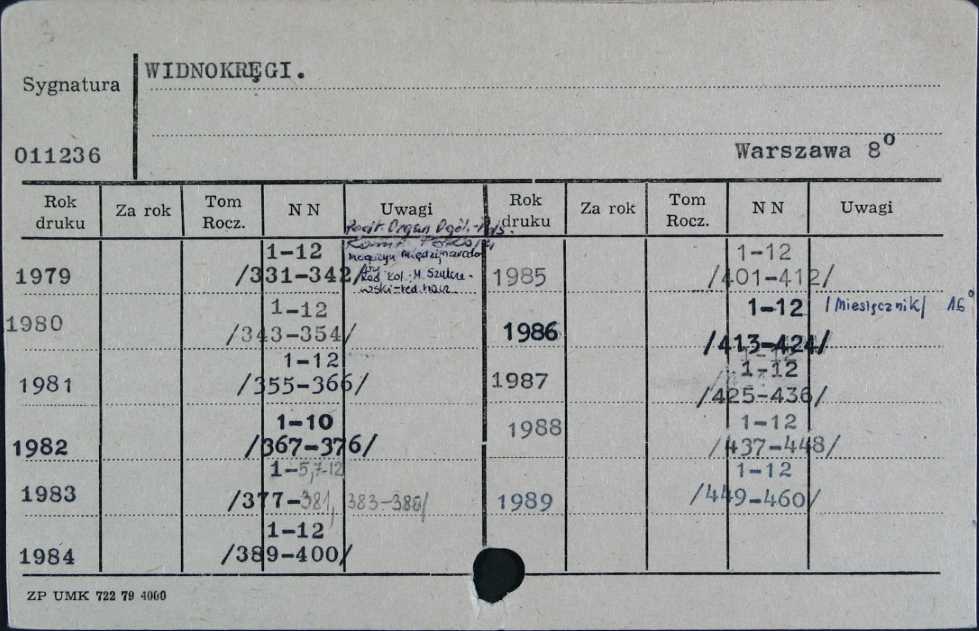 WIDNOKRĘGI.
Sygnatura
011236
Warszawa 8°
Rok druku Za rok Tom Rocz. N N Uwagi Rok druku Za rok Tom Rocz. N N Uwagi
1979 1-12 /331-342/
Organ Ogól.
Magazyn międzynarodo
wy
Red. Kol.: M.
1980 1-12 /343-354/
1981 1-12 /355-366/
1982 1-10 /367-376/
1983 1-5,7-12 /377-381, 383-388/
1984 1-12 /389-400/
1985 1-12 /401-412/
1986 1-12 /413-424/ /Miesięcznik/ 16°
1987 1-12 /425-436/
1988 1-12 /437-448/
1989 1-12 /449-460/
ZP UMK 722 79 4000